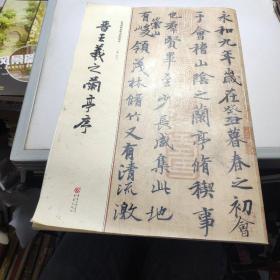 永和九年歲在癸丑暮春之初會
于會稽山陰之蘭亭脩稧事
也羣賢畢至少長咸集此地
有崇山峻領茂林脩竹又有清流激
晋王羲之蘭亭序
风景篇